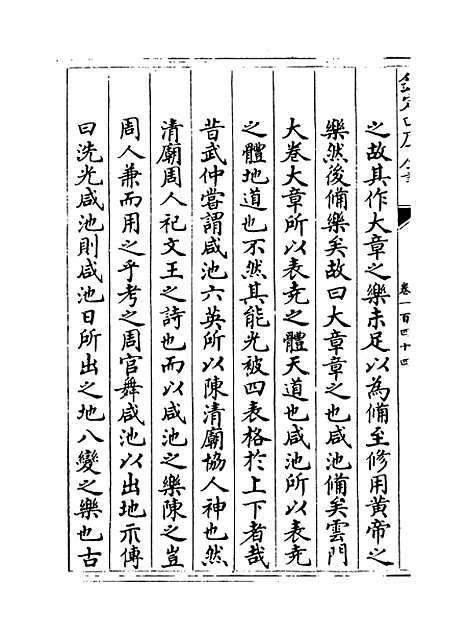 欽定四庫全書
卷一百四十四
之故其作大章之樂未足以為備至修用黃帝之
樂然後備樂矣故曰大章章之也咸池備矣雲門
大卷大章所以表堯之體天道也咸池所以表堯
之體地道也不然其能光被四表格於上下者哉
昔武仲嘗謂咸池六英所以陳清廟協人神也然
清廟周人祀文王之詩也而以咸池之樂陳之豈
周人兼而用之乎考之周官舞咸池以出地示傳
曰洗光咸池則咸池日所出之地八變之樂也古